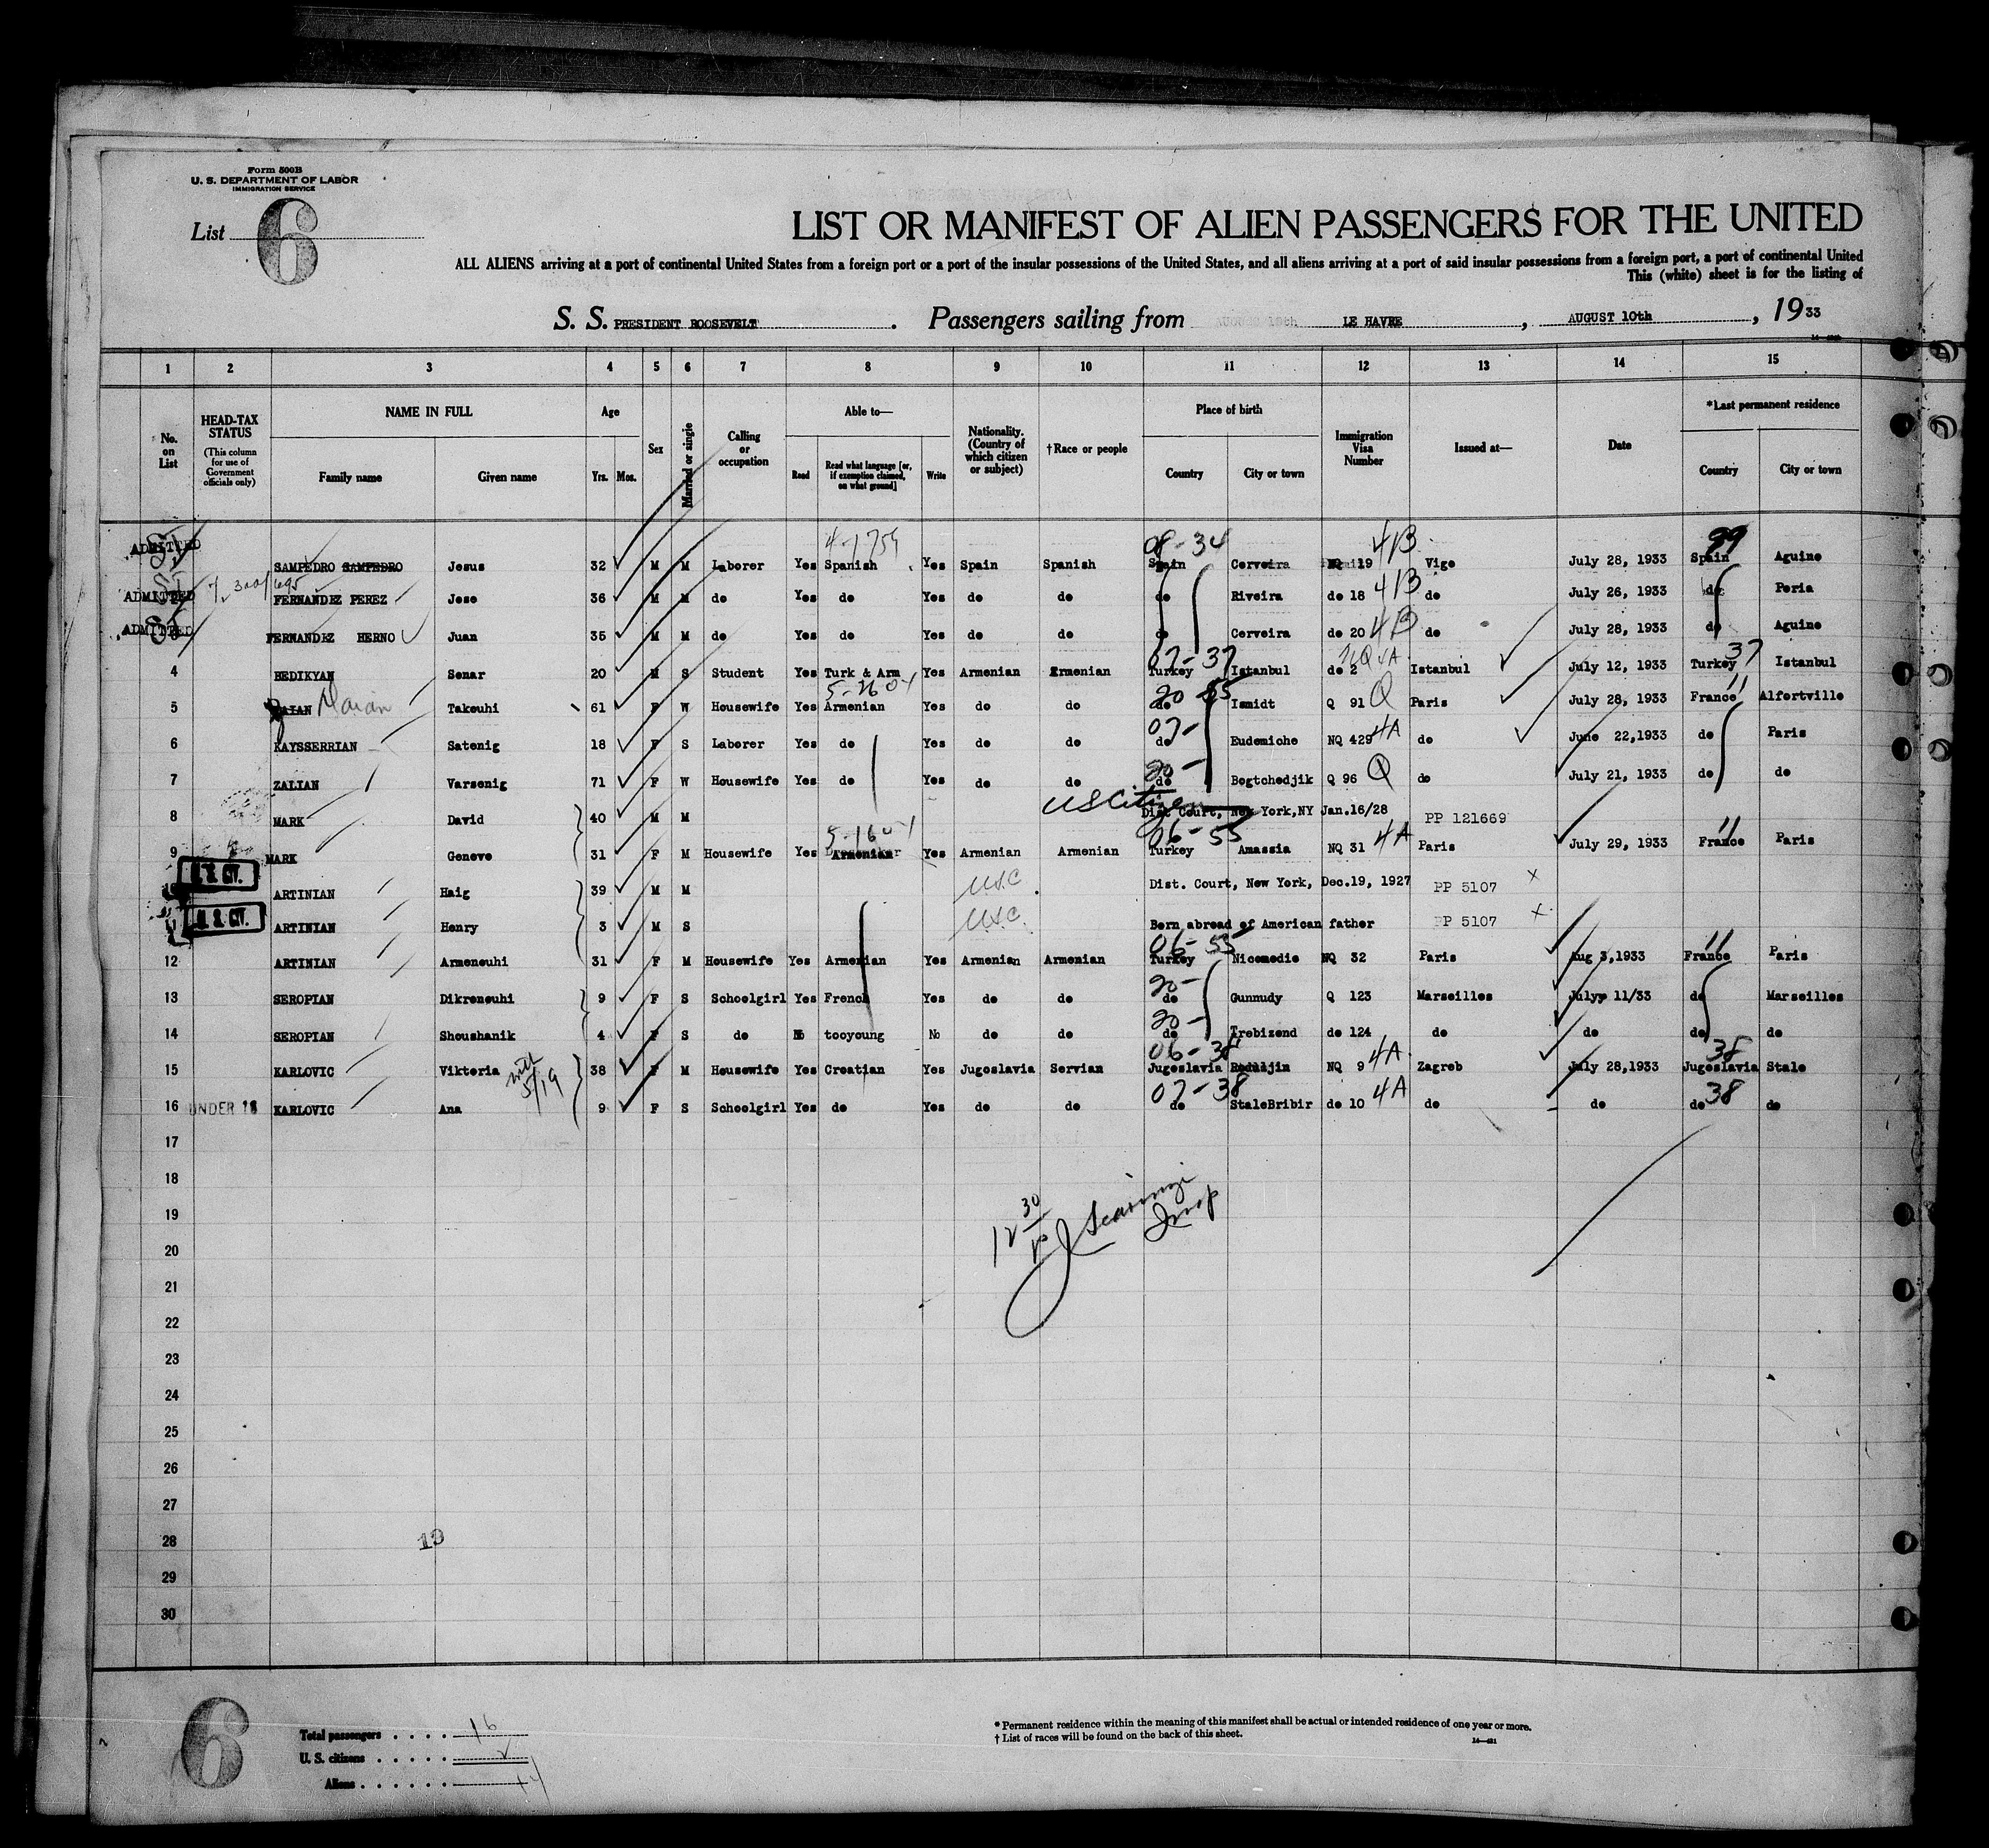 Form 500B
U. S. DEPARTMENT OF LABOR
IMMIGRATION SERVICE
List 6
LIST OR MANIFEST OF ALIEN PASSENGERS FOR THE UNITED
ALL ALIENS arriving at a port of continental United States from a foreign port or a port of the insular possessions of the United States, and all aliens arriving at a port of said insular possessions from a foreign port, a port of continental United
This (white) sheet is for the listing of
S. S. PRESIDENT ROOSEVELT . Passengers sailing from LE HAVRE , AUGUST 10th , 19 33
1 2 3 4 5 6 7 8 9 10 11 12 13 14 15
No. on List HEAD-TAX STATUS (This column for use of Government officials only) NAME IN FULL Family name Given name Age Yrs. Mos. Sex Married or single Calling or occupation Able to— Read Read what language [or, if exemption claimed, on what ground] Write Nationality. (Country of which citizen or subject) †Race or people Place of birth Country City or town Immigration Visa Number Issued at— Date *Last permanent residence Country City or town
ADMITTED SAMPEDRO SAMPEDRO Jesus 32 M M Laborer Yes Spanish Yes Spain Spanish 08-34 Spain Cerveira NQ 19 4B Vigo July 28, 1933 Spain 99 Aguine
ADMITTED FERNANDEZ PEREZ Jose 36 M M do Yes do Yes do do do Riveira do 18 4B do July 26, 1933 do Peria
ADMITTED FERNANDEZ HERNO Juan 35 M M do Yes do Yes do do do Cerveira do 20 4B do July 28, 1933 do Aguine
4 BEDIKYAN Senar 20 M S Student Yes Turk & Arm Yes Armenian Armenian 07-37 Turkey Istanbul do 2 Istanbul July 12, 1933 Turkey 37 Istanbul
5 Daian Takouhi 61 F W Housewife Yes Armenian Yes do do 20-55 do Ismidt Q 91 Q Paris July 28, 1933 France 11 Alfortville
6 KAYSSERRIAN Satenig 18 F S Laborer Yes do Yes do do 07- do Eudemiche NQ 429 4A do June 22,1933 do Paris
7 ZALIAN Varsenig 71 F W Housewife Yes do Yes do do 20- do Bogtchedjik Q 96 Q do July 21, 1933 do do
8 MARK David 40 M M US Citizen Dist Court, New York,NY Jan.16/28 PP 121669
9 MARK Geneve 31 F M Housewife Yes Armenian Yes Armenian Armenian 06-55 Turkey Amassia NQ 31 4A Paris July 29, 1933 France 11 Paris
10 ARTINIAN Haig 39 M M U.S.C. Dist. Court, New York, Dec.19, 1927 PP 5107 X
11 U. S. CIT. ARTINIAN Henry 3 M S U.S.C. Born abroad of American father PP 5107 X
12 ARTINIAN Armenouhi 31 F M Housewife Yes Armenian Yes Armenian Armenian 06-55 Turkey Nicomedie NQ 32 Paris Aug 3,1933 France 11 Paris
13 SEROPIAN Dikranouhi 9 F S Schoolgirl Yes French Yes do do 20- do Gunnudy Q 123 Marseilles July 11/33 do Marseilles
14 SEROPIAN Shoushanik 4 F S do No tooyoung No do do 20- do Trebizond do 124 do do do do
15 KARLOVIC Viktoria 38 F M Housewife Yes Croatian Yes Jugoslavia Servian 06-38 Jugoslavia NQ 9 4A Zagreb July 28,1933 Jugoslavia 38 Stale
16 UNDER 16 KARLOVIC Ana 5/19 9 F S Schoolgirl Yes do Yes do do 07-38 do StaleBribir do 10 4A do do do 38 do
17
18
19
20
21
22
23
24
25
26
27
28
29
30
12 30
Insp
19
6
Total passengers . . . . 16
U. S. citizens . . . . .
Aliens . . . . . .
* Permanent residence within the meaning of this manifest shall be actual or intended residence of one year or more.
† List of races will be found on the back of this sheet.